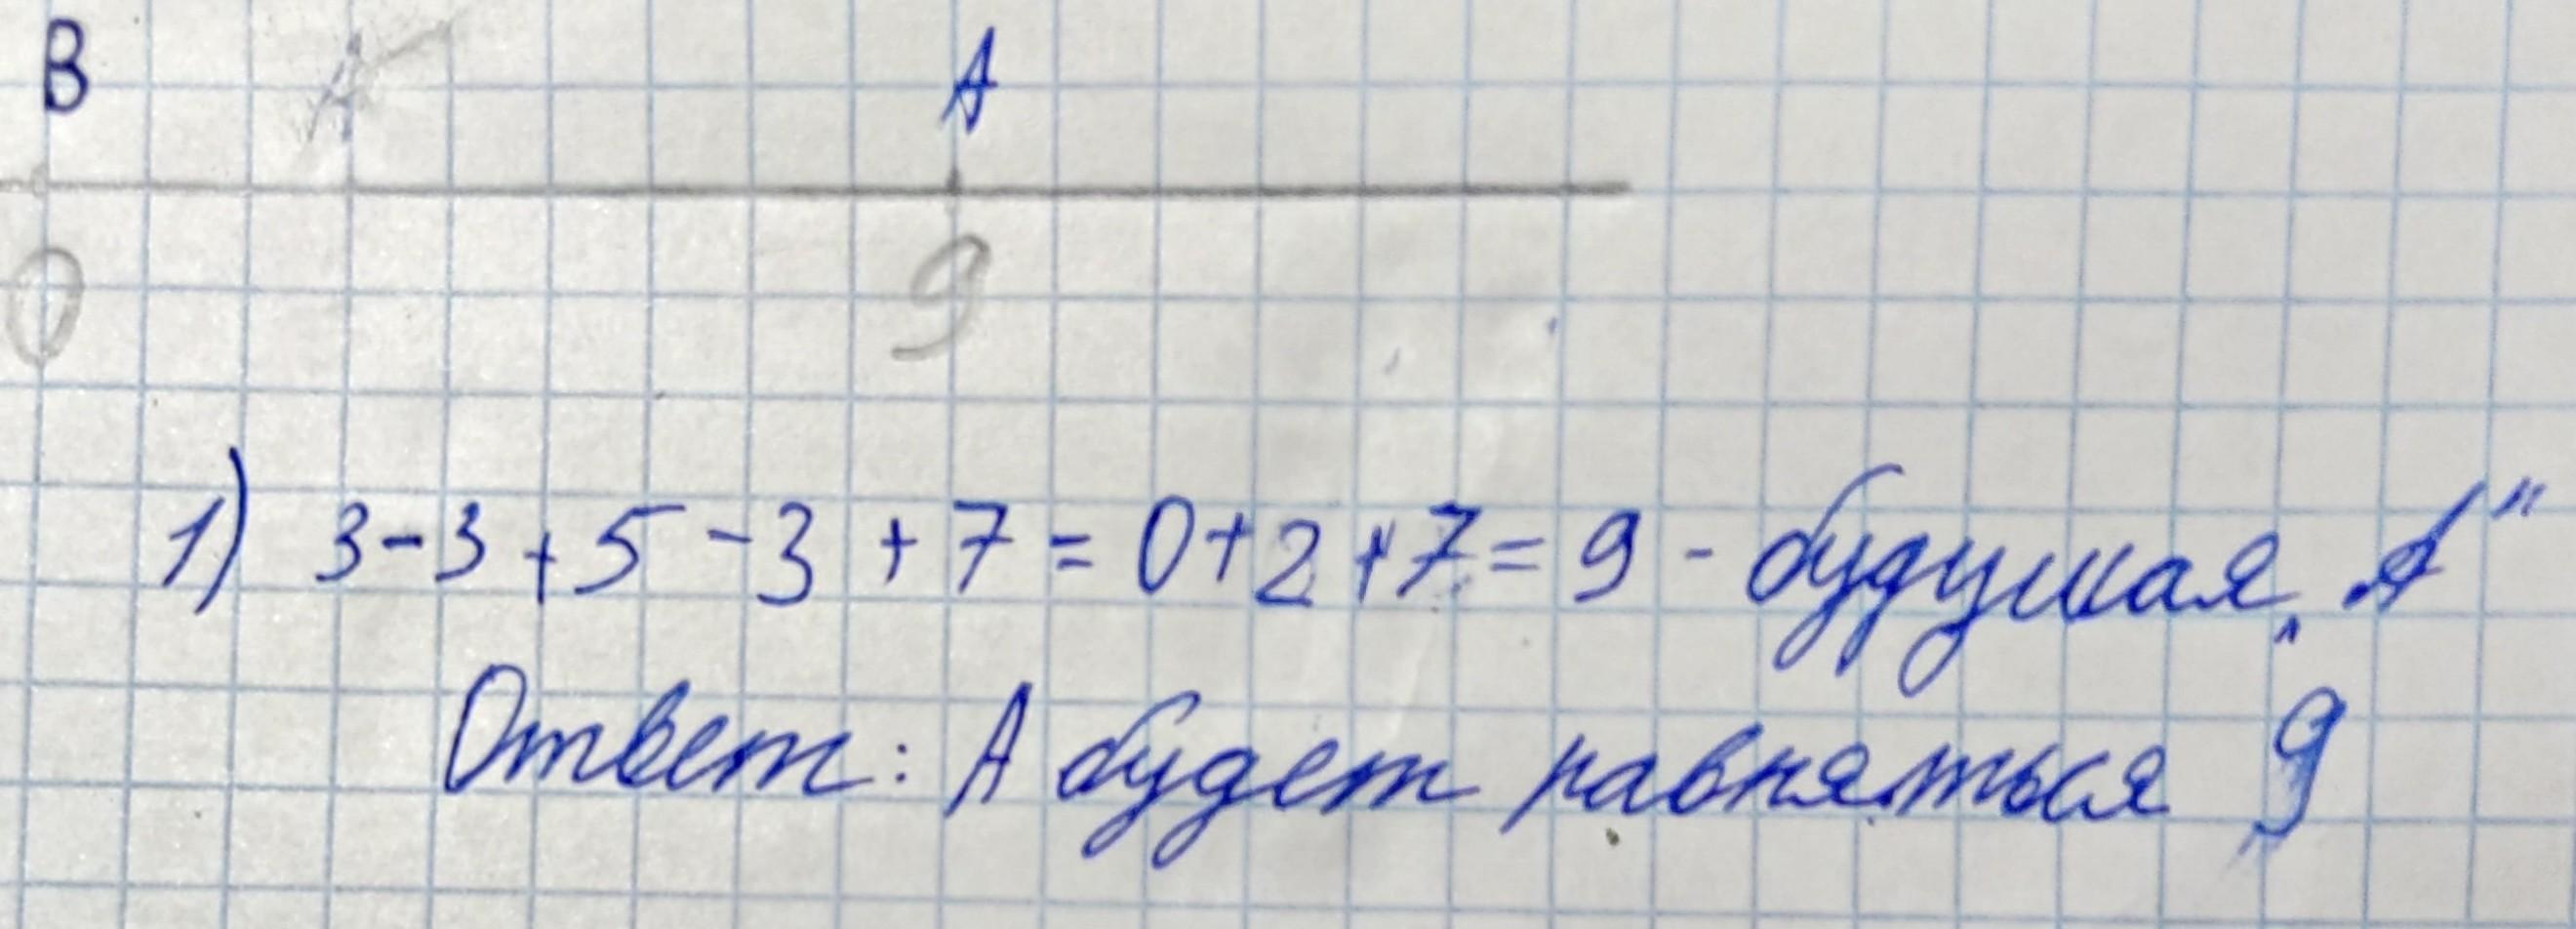 В А А
0 9
1) 3-3+5-3+7=0+2+7=9 - будущая „А"
Ответ: А будет равняться 9